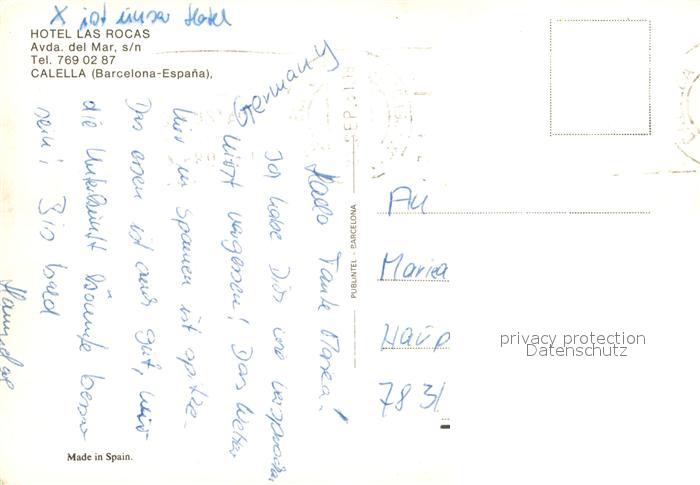 X ist unser Hotel
HOTEL LAS ROCAS
Avda. del Mar, s/n
Tel. 769 02 87
CALELLA (Barcelona-España),
Germany
Hallo Tante Maria!
Ich habe Dir wie versprochen
nicht vergessen! Das Wetter
hier in Spanien ist spitze.
Das essen ist auch gut, nur
die Unterkunft könnte besser
sein! Bis bald
PUBLINTEL - BARCELONA
SEP
An
Maria
Haup
7831
privacy protection
Datenschutz
Made in Spain.